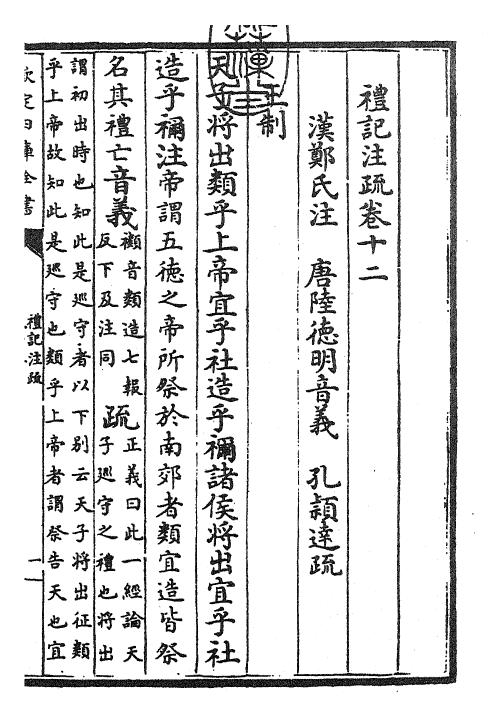 禮記注疏卷十二
漢鄭氏注　唐陸德明音義　孔穎達疏
王制
天子將出類乎上帝宜乎社造乎禰諸侯將出宜乎社
造乎禰注帝謂五德之帝所祭於南郊者類宜造皆祭
名其禮亡音義
禷音類造七報
反下及注同
疏
正義曰此一經論天
子廵守之禮也將出
謂初出時也知此是廵守者以下別云天子將出征類
乎上帝故知此是廵守也類乎上帝者謂祭告天也宜
欽定四庫全書
禮記注疏
一